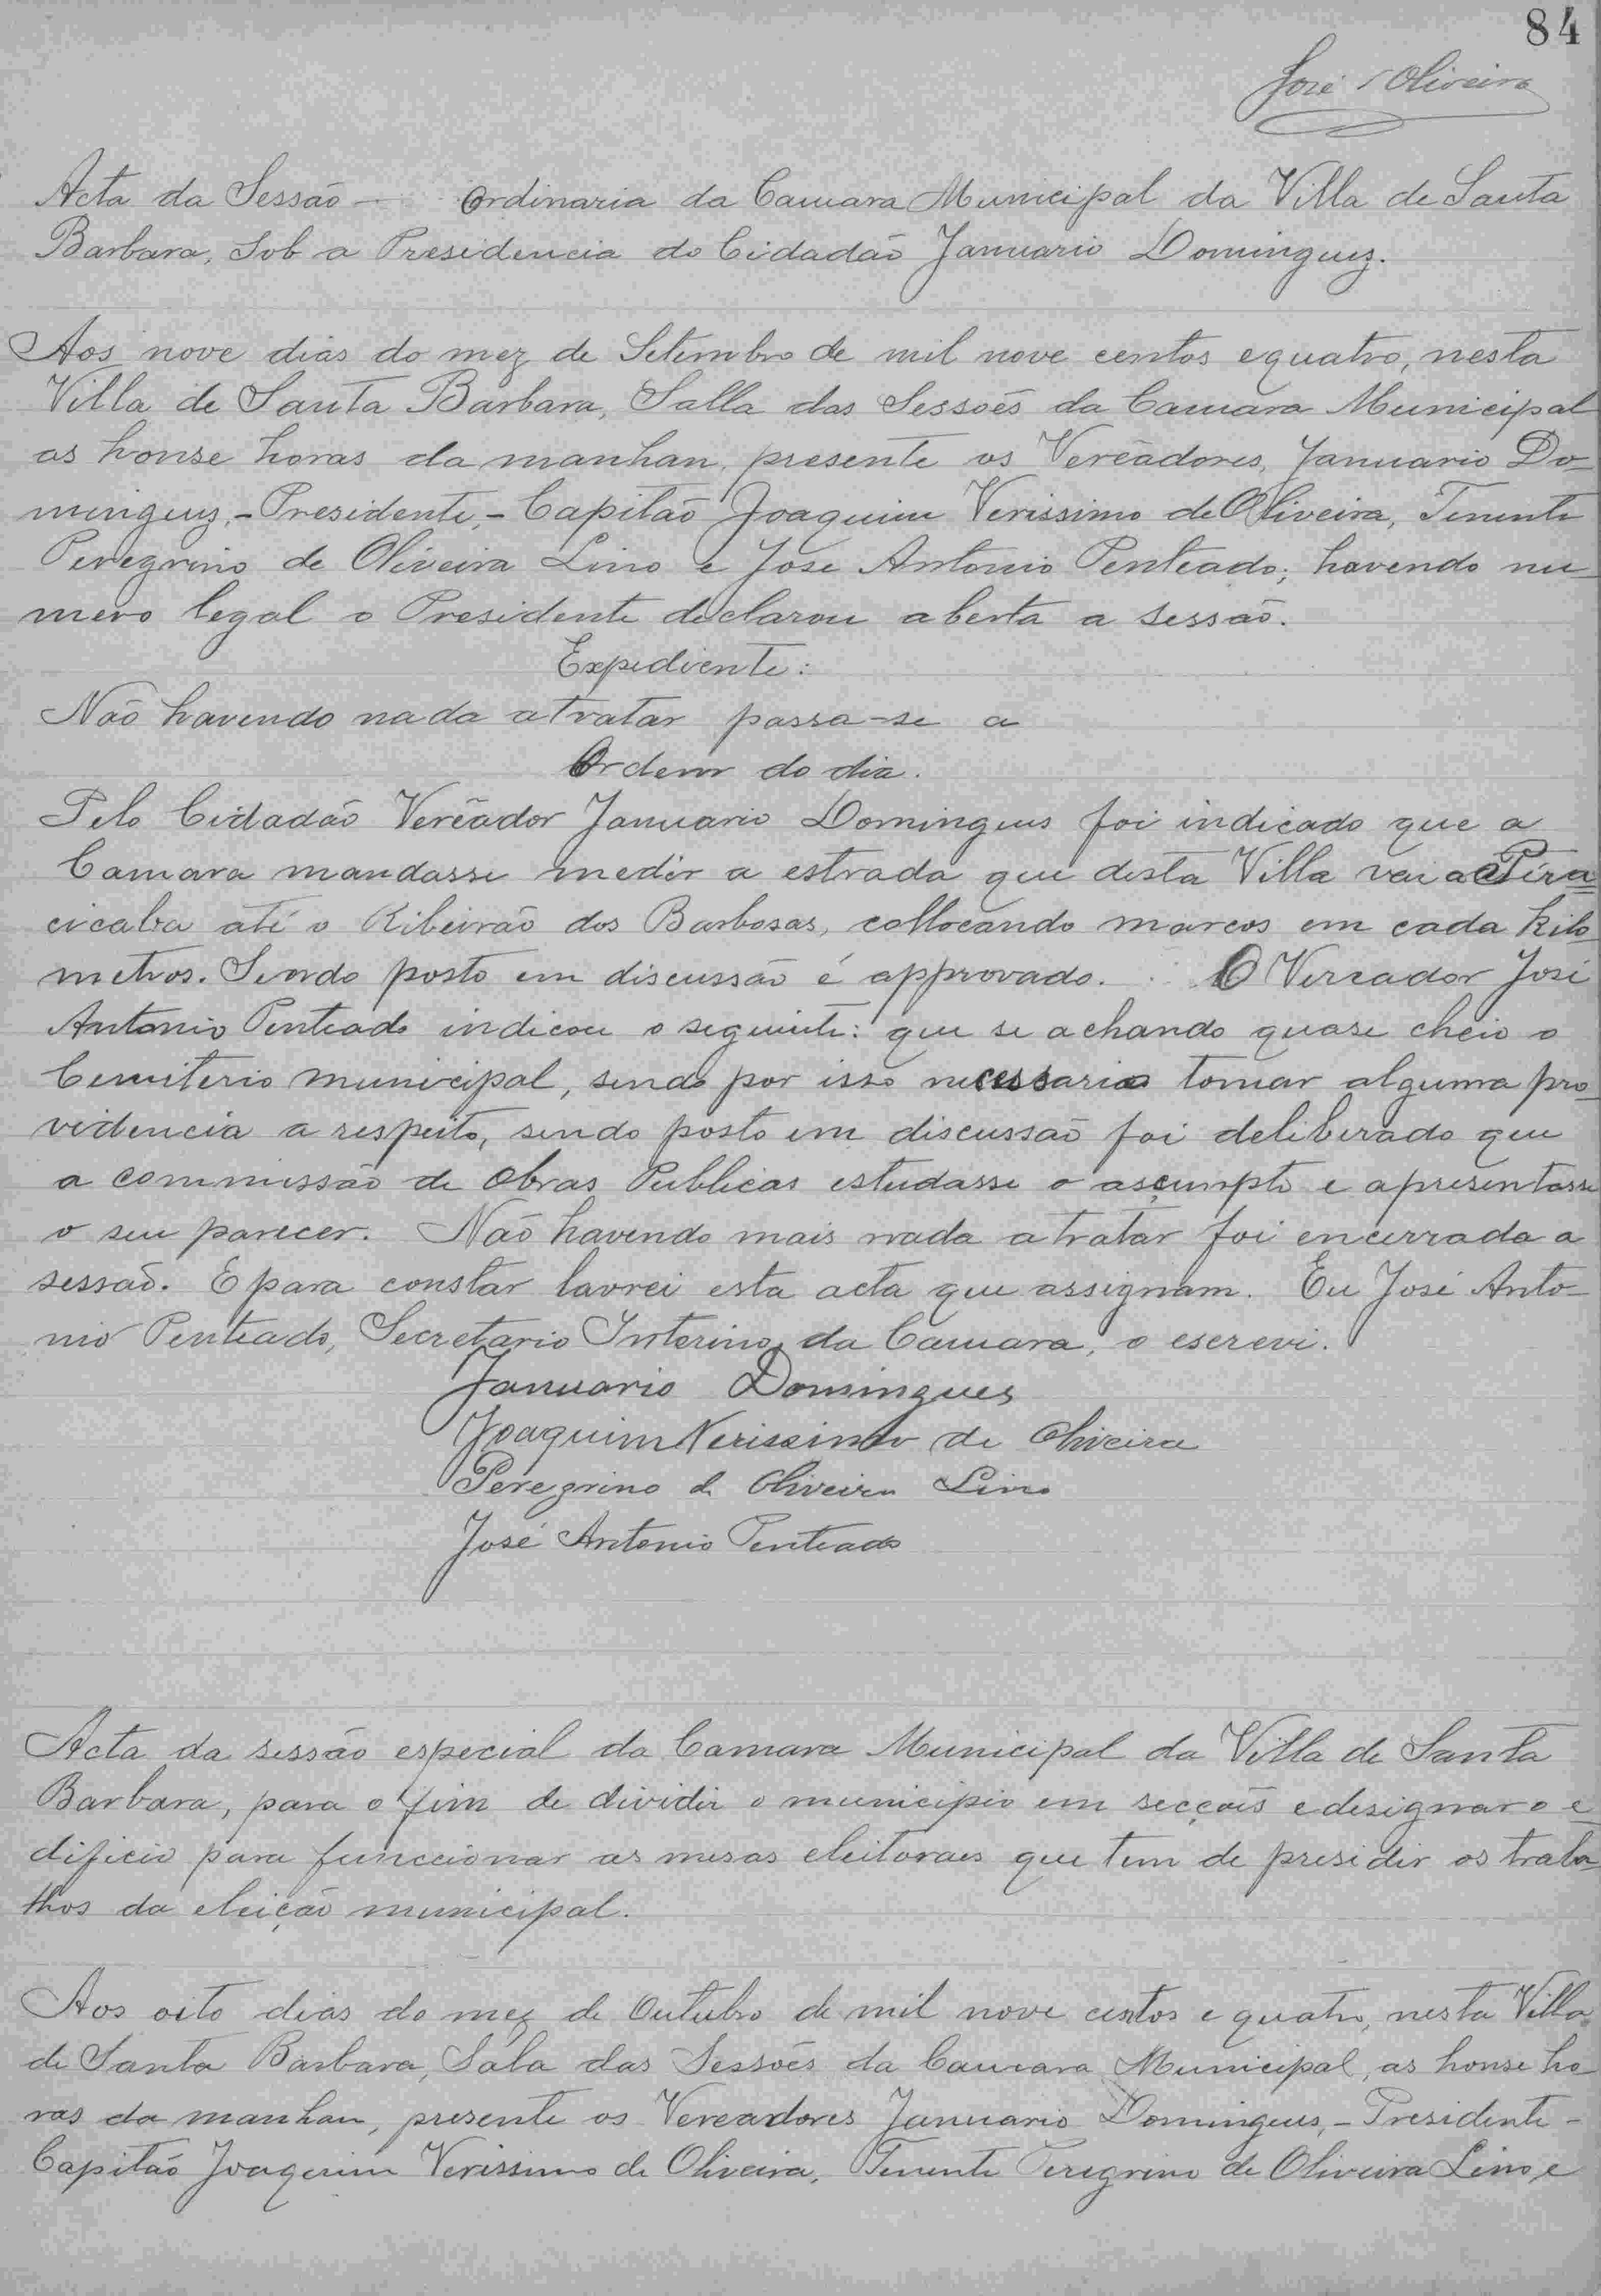 84
José Oliveira
Acta da Sessão — Ordinaria da Camara Municipal da Villa de Santa
Barbara, Sob a Presidencia do Cidadão Januario Domingues.
Aos nove dias do mez de Setembro de mil nove centos e quatro, nesta
Villa de Santa Barbara, Salla das Sessoẽs da Camara Municipal
as honse horas da manhan, presente os Verẽadores, Januario Do-
mingues, - Presidente, - Capitão Joaquim Verissimo de Oliveira, Tenente
Peregrino de Oliveira Lino e Jose Antonio Penteado; havendo nu-
mero legal o Presidente declarou aberta a sessão.
Expediente:
Não havendo nada a tratar passa-se a
Ordem do dia.
Pelo Cidadão Verẽador Januario Domingues foi indicado que a
Camara mandasse medir a estrada que desta Villa vai a Pira-
cicaba até o Ribeirão dos Barbosas, collocando marcos em cada kilo-
metros. Sendo posto em discussão é approvado. O Vereador José
Antonio Penteado indicou o seguinte: que se achando quase cheio o
Cemiterio municipal, sendo por isso necessario tomar alguma pro-
videncia a respeito, sendo posto em discussão foi deliberado que
a commissão de Obras Publicas estudasse o assumpto e apresentasse
o seu parecer. Não havendo mais nada a tratar foi encerrada a
sessão. E para constar lavrei esta acta que assignam. Eu José Anto-
nio Penteado, Secretario Interino, da Camara, o escrevi.
Januario Domingues
Joaquim Verissimo de Oliveira
Peregrino d Oliveira Lino
José Antonio Penteado
Acta da sessão especial da Camara Municipal da Villa de Santa
Barbara, para o fim de dividir o municipio em secçoẽs e designar o e-
dificio para funccionar as mesas eleitoraes que tem de presidir os traba-
lhos da eleição municipal.
Aos oito dias do mez de Outubro de mil nove centos e quatro, nesta Villa
de Santa Barbara, Sala das Sessoẽs da Camara Municipal, as honse ho-
ras da manhan, presente os Vereadores Januario Domingues, - Presidente -
Capitão Joaquim Verissimo de Oliveira, Tenente Peregrino de Oliveira Lino, e